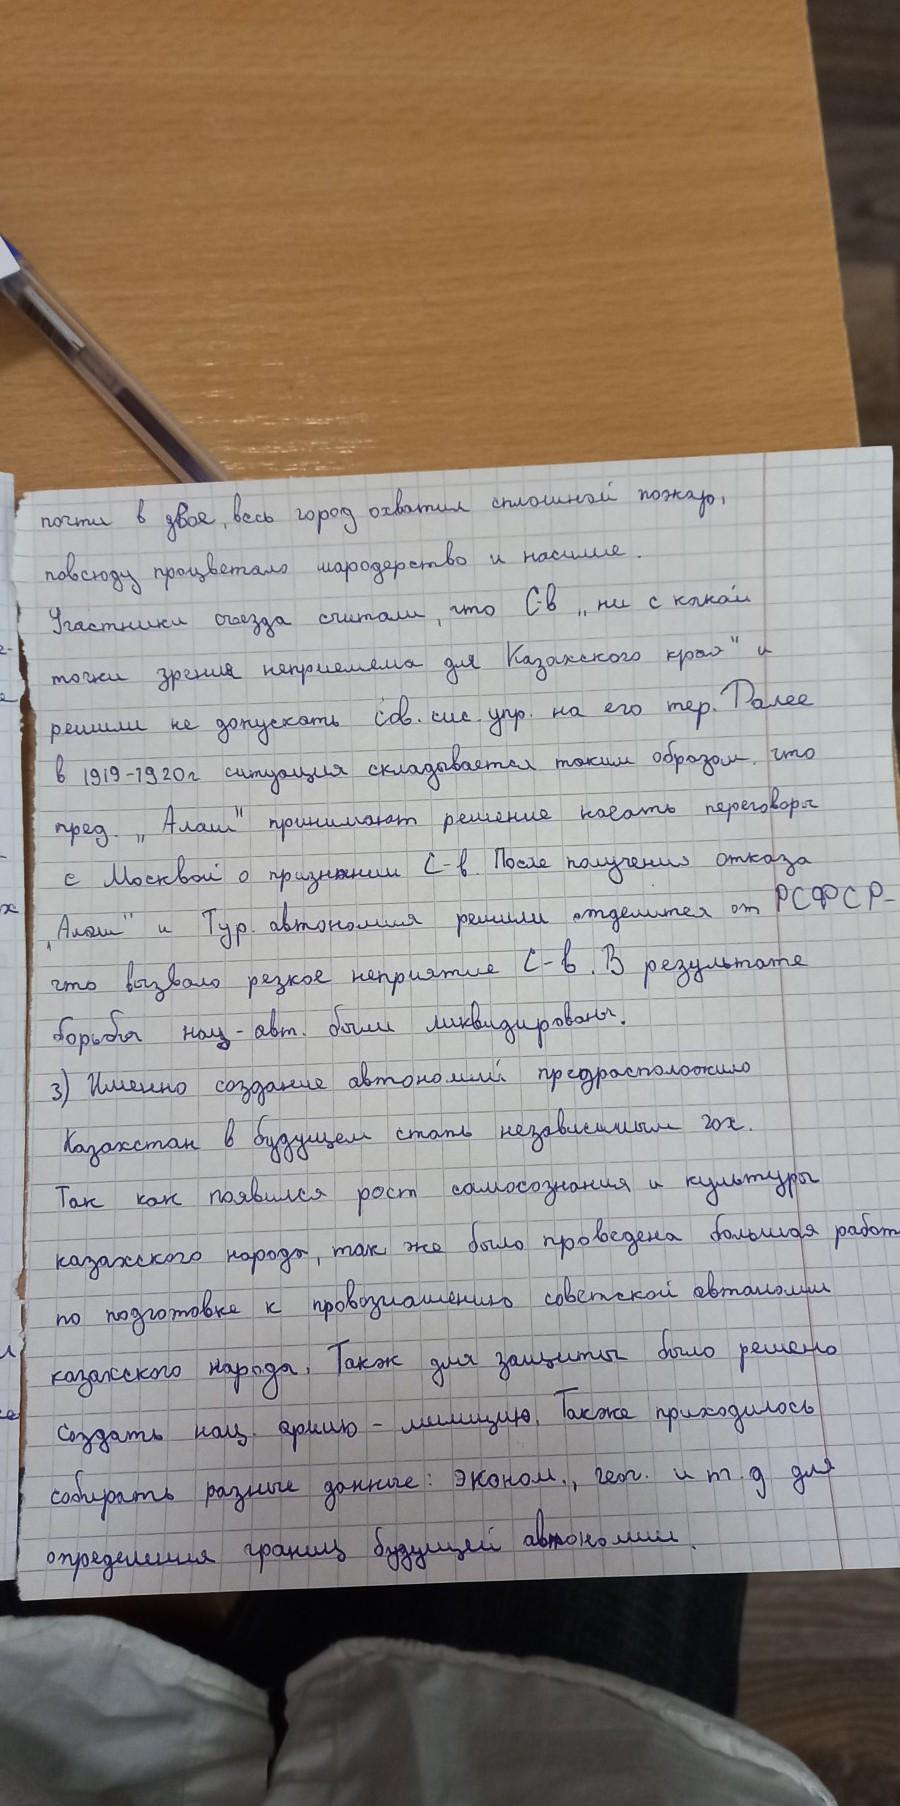 почти в двое, весь город охватил сплошной пожар,
повсюду процветало мародерство и насилие.
Участники съезда считали, что С-в „ни с какой
точки зрения неприемлема для Казахского края" и
решили не допускать сов. сис. упр. на его тер. Далее
в 1919-1920г ситуация складывается таким образом, что
пред. „Алаш" принимают решение начать переговоры
с Москвой о признании С-в. После получения отказа
„Алаш" и Тур. автономия решили отделится от РСФСР-
что вызвало резкое неприятие С-в. В результате
борьбы нац-авт. были ликвидированы.
3) Именно создание автономий предрасположило
Казахстан в будущем стать независимым гох.
Так как появился рост самосознания и культуры
казахского народа, так же было проведена большая работ
по подготовке к провозглашению советской автономии
казахского народа. Такж для защиты было решено
создать нац. армию - милицию. Также приходилось
собирать разные данные: эконом., геог. и т.д для
определения границ будущей автономии.